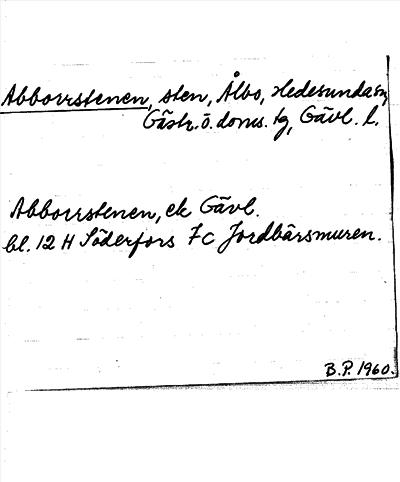 Abborrstenen, sten, Ålbo, Hedesunda sn,
Gästr. ö. doms. tg, Gävl. l.
Abborrstenen, ek Gävl.
bl. 12 H Söderfors 7 c Jordbärsmuren.
B.P. 1960.